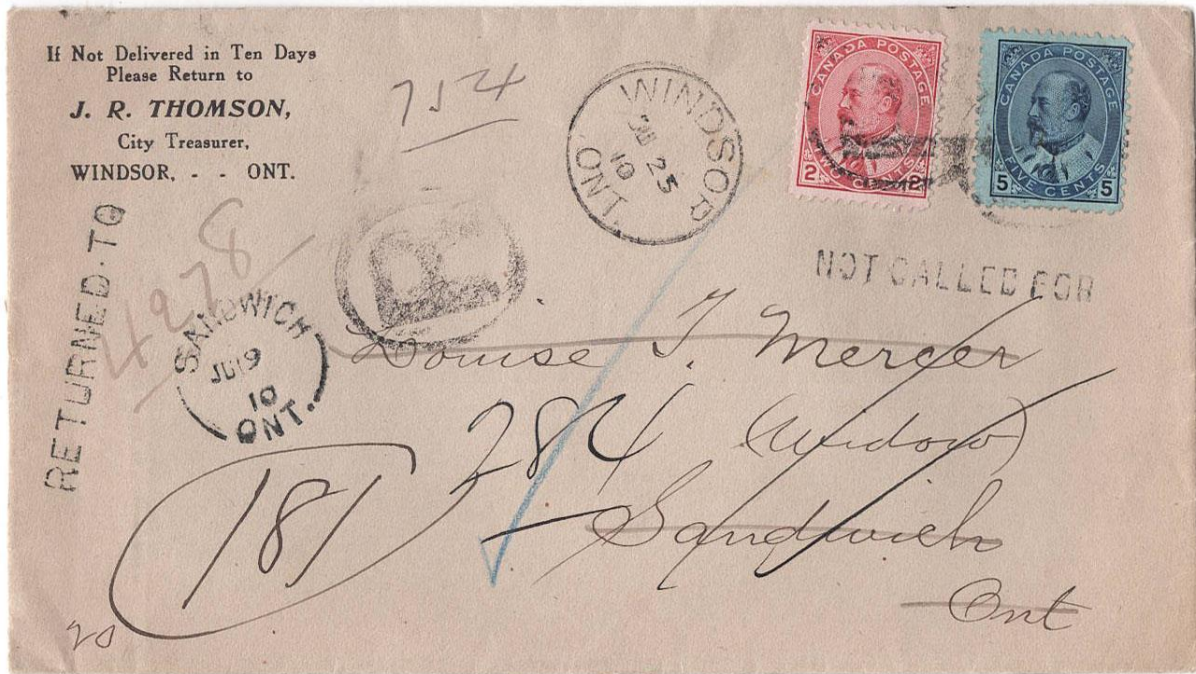 If Not Delivered in Ten Days
Please Return to
J. R. THOMSON,
City Treasurer,
WINDSOR, - - ONT.
754
WINDSOR
25
10
ONT.
CANADA POSTAGE
TWO CENTS
2 2
CANADA POSTAGE
FIVE CENTS
5 5
NOT CALLED FOR
RETURNED TO
4278
R
SANDWICH
JU 19
10
ONT.
Louise T. Mercer
284 (Widow)
181
Sandwich
Ont
20